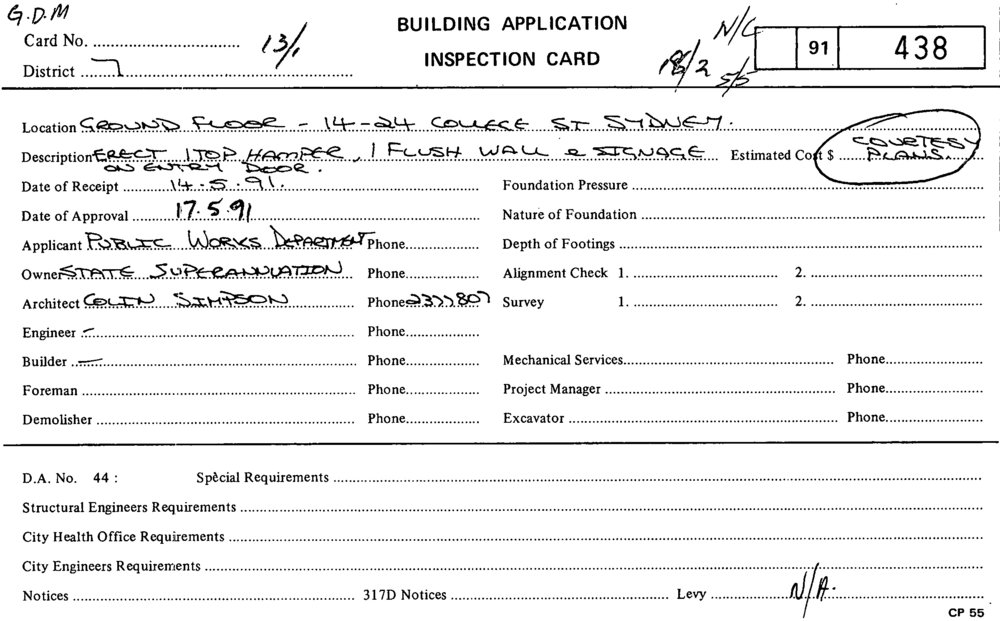 G.D.M
BUILDING APPLICATION
INSPECTION CARD
Card No. 13/1
N/C
91 438
District 7
18/2 5/5
Location GROUND FLOOR - 14-24 COLLEGE ST SYDNEY.
Description ERECT 1 TOP HAMPER, 1 FLUSH WALL & SIGNAGE Estimated Cost $ COURTESY PLANS.
ON ENTRY DOOR.
Date of Receipt 14.5.91. Foundation Pressure
Date of Approval 17.5.91 Nature of Foundation
Applicant PUBLIC WORKS DEPARTMENT Phone Depth of Footings
Owner STATE SUPERANNUATION Phone Alignment Check 1. 2.
Architect COLIN SIMPSON Phone 2377807 Survey 1. 2.
Engineer – Phone
Builder – Phone Mechanical Services Phone
Foreman Phone Project Manager Phone
Demolisher Phone Excavator Phone
D.A. No. 44 : Special Requirements
Structural Engineers Requirements
City Health Office Requirements
City Engineers Requirements
Notices 317D Notices Levy N/A.
CP 55